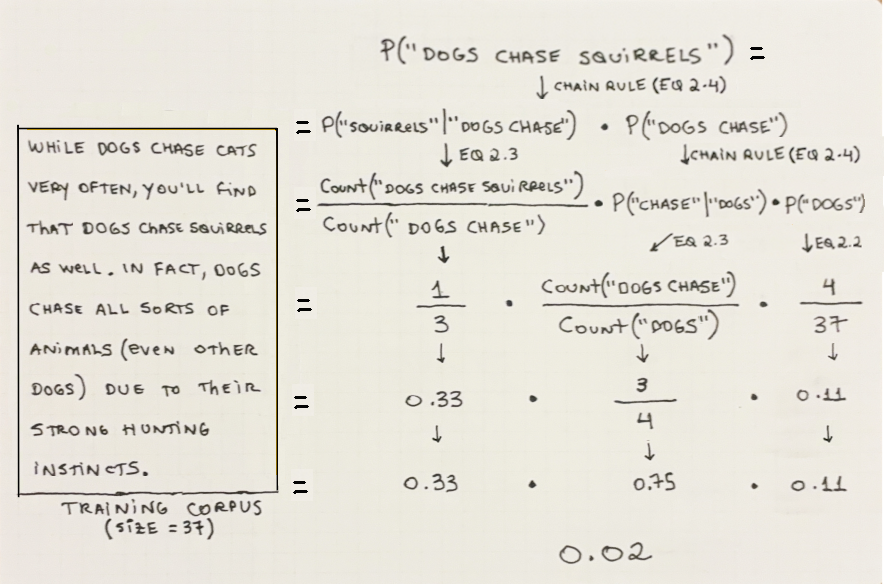 P("DOGS CHASE SQUIRRELS") =
↓ CHAIN RULE (EQ 2.4)
= P("SQUIRRELS"|"DOGS CHASE") • P("DOGS CHASE")
↓ EQ 2.3 ↓CHAIN RULE (EQ 2.4)
= COUNT("DOGS CHASE SQUIRRELS")
COUNT("DOGS CHASE") • P("CHASE"|"DOGS") • P("DOGS")
↓ ↙ EQ 2.3 ↓EQ 2.2
= 1 • COUNT("DOGS CHASE") • 4
3 COUNT("DOGS") 37
↓ ↓ ↓
= 0.33 • 3 • 0.11
4
↓ ↓ ↓
= 0.33 • 0.75 • 0.11
0.02
WHILE DOGS CHASE CATS
VERY OFTEN, YOU'LL FIND
THAT DOGS CHASE SQUIRRELS
AS WELL. IN FACT, DOGS
CHASE ALL SORTS OF
ANIMALS (EVEN OTHER
DOGS) DUE TO THEIR
STRONG HUNTING
INSTINCTS.
TRAINING CORPUS
(SIZE = 37)